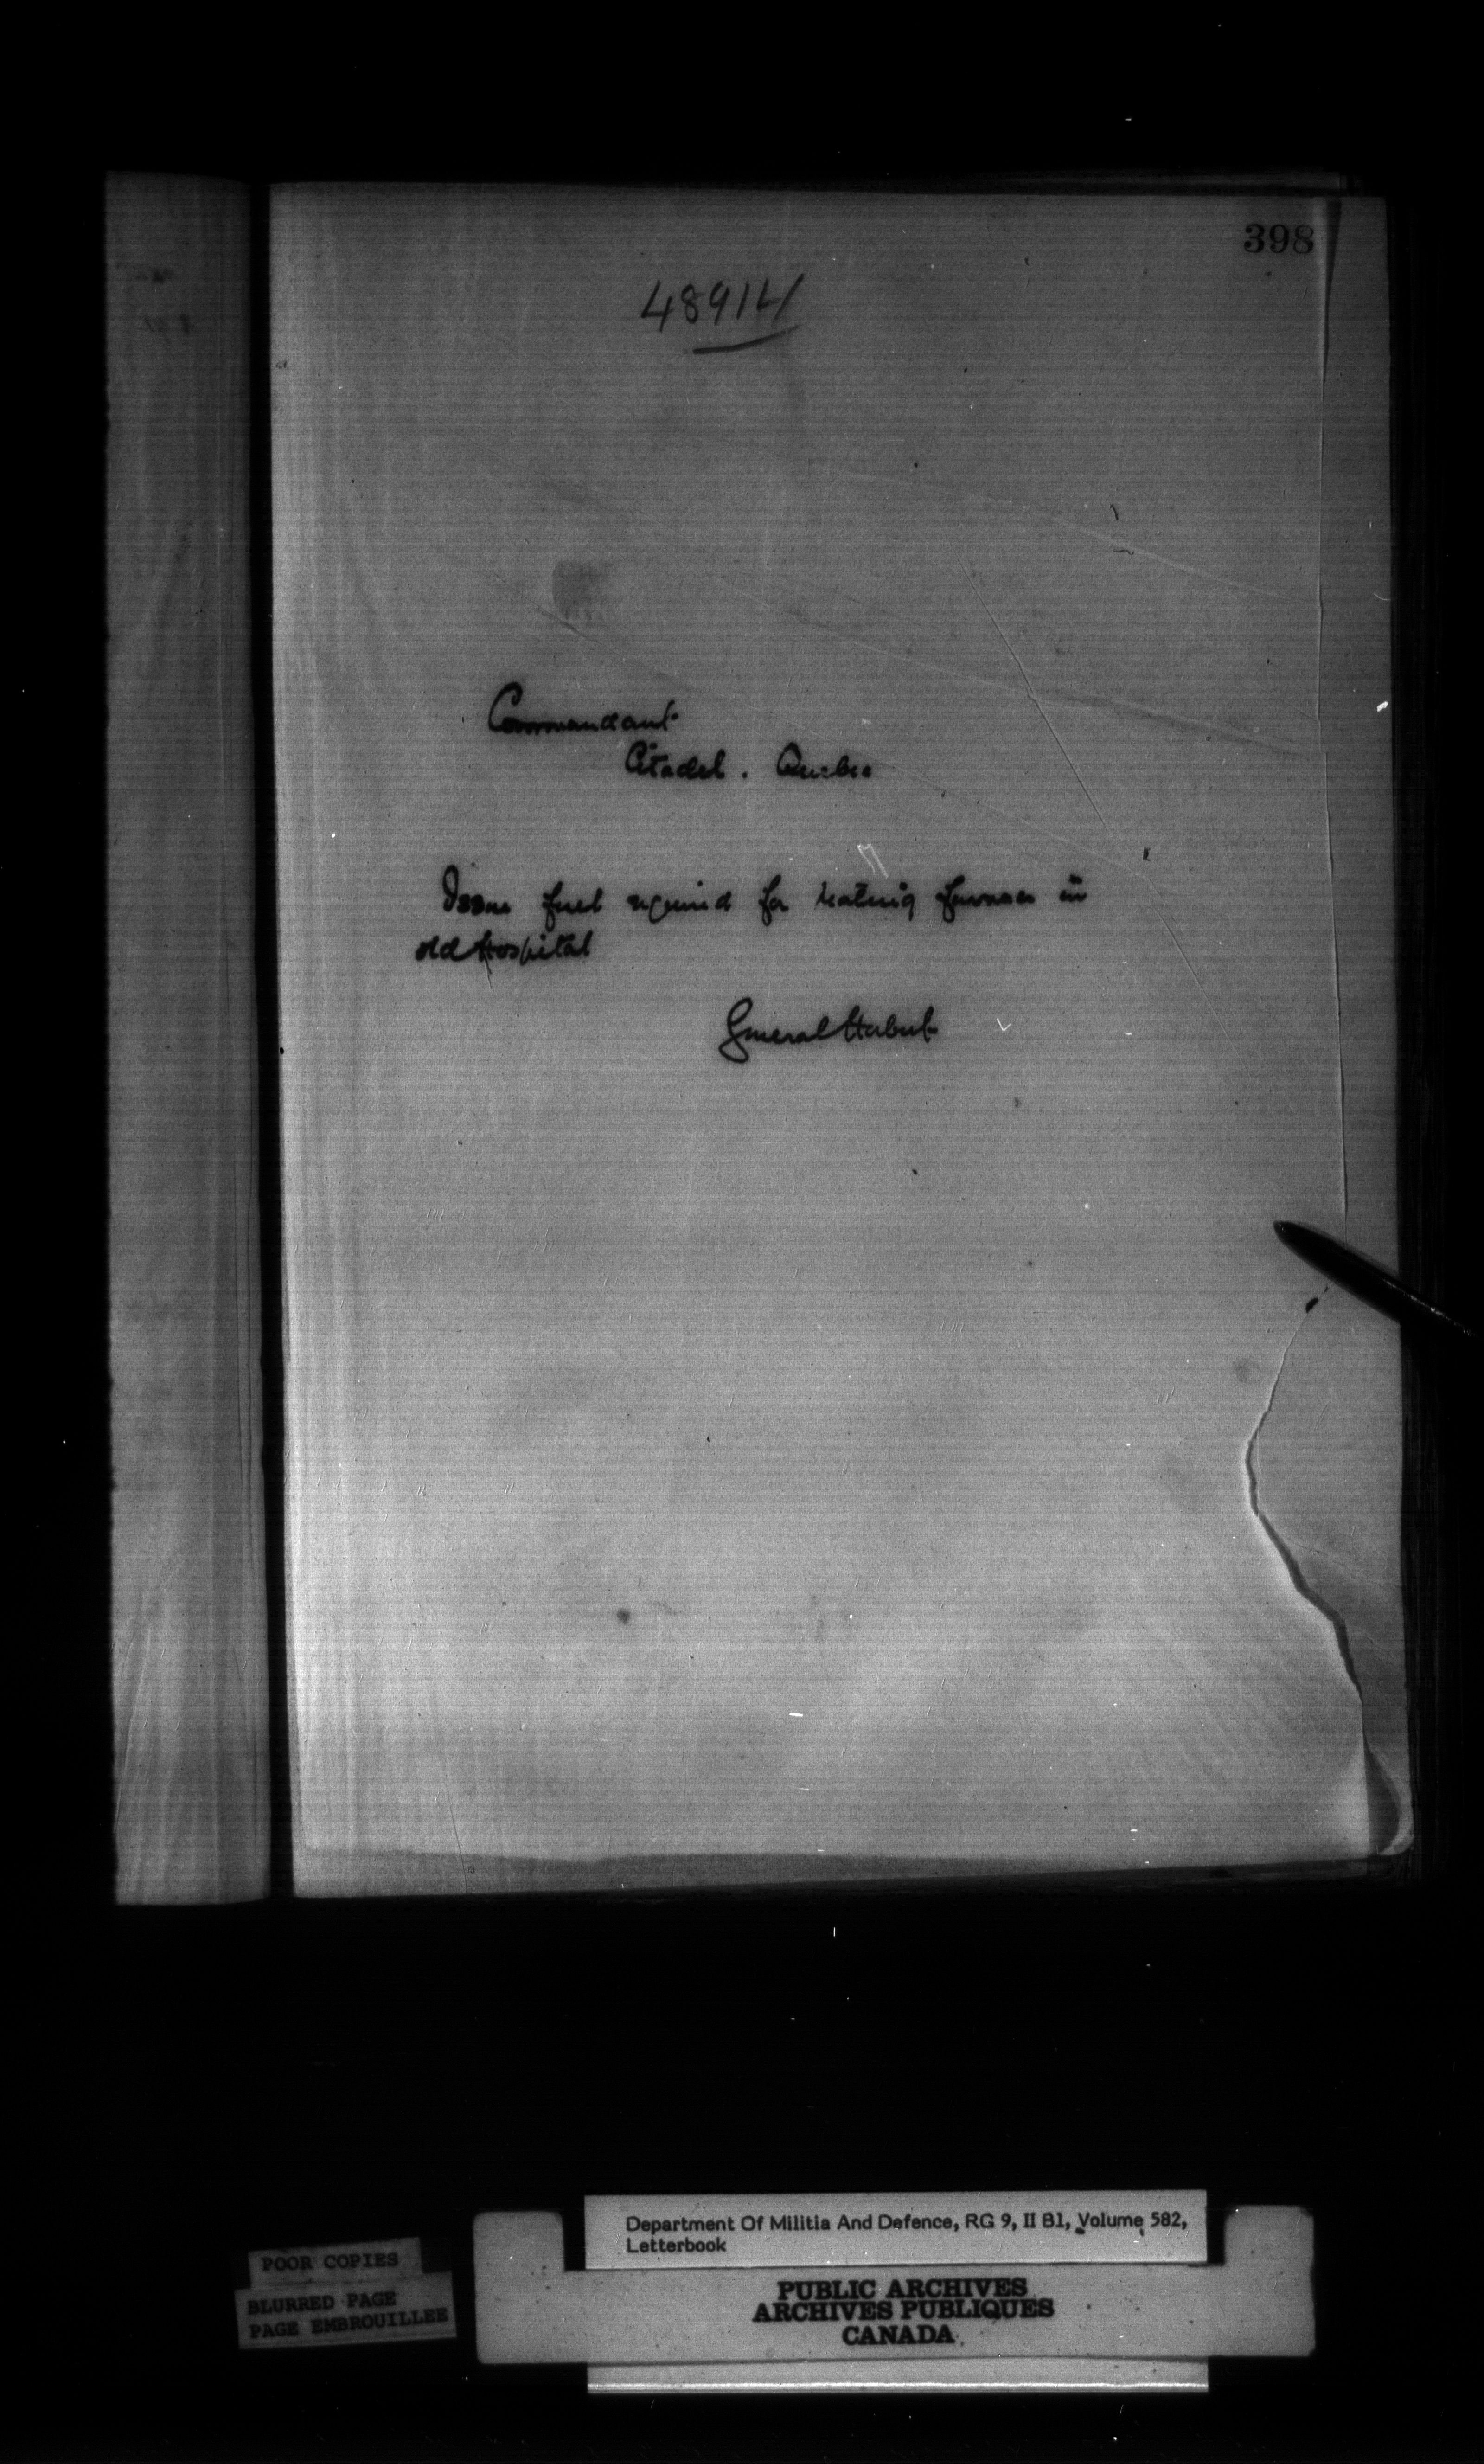 398
48914
Commandant
Citadel. Quebec
Issue fuel required for heating furnace in
old Hospital
General Herbert
Department Of Militia And Defence, RG 9, II B1, Volume 582,
Letterbook
POOR COPIES
BLURRED PAGE
PAGE EMBROUILLEE
PUBLIC ARCHIVES
ARCHIVES PUBLIQUES
CANADA